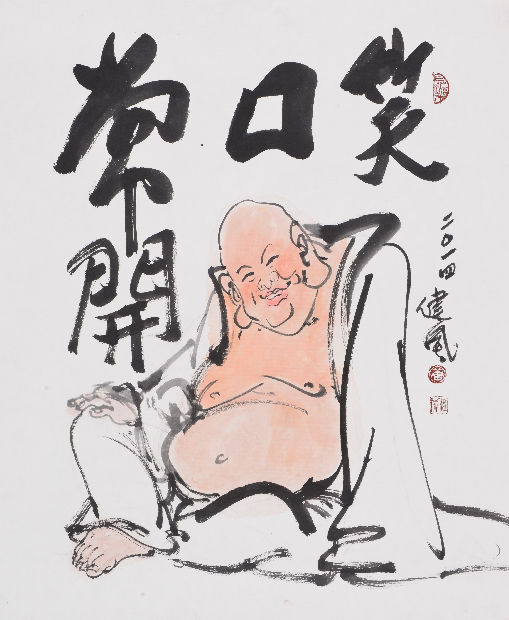 笑口常開
二〇一四 健風